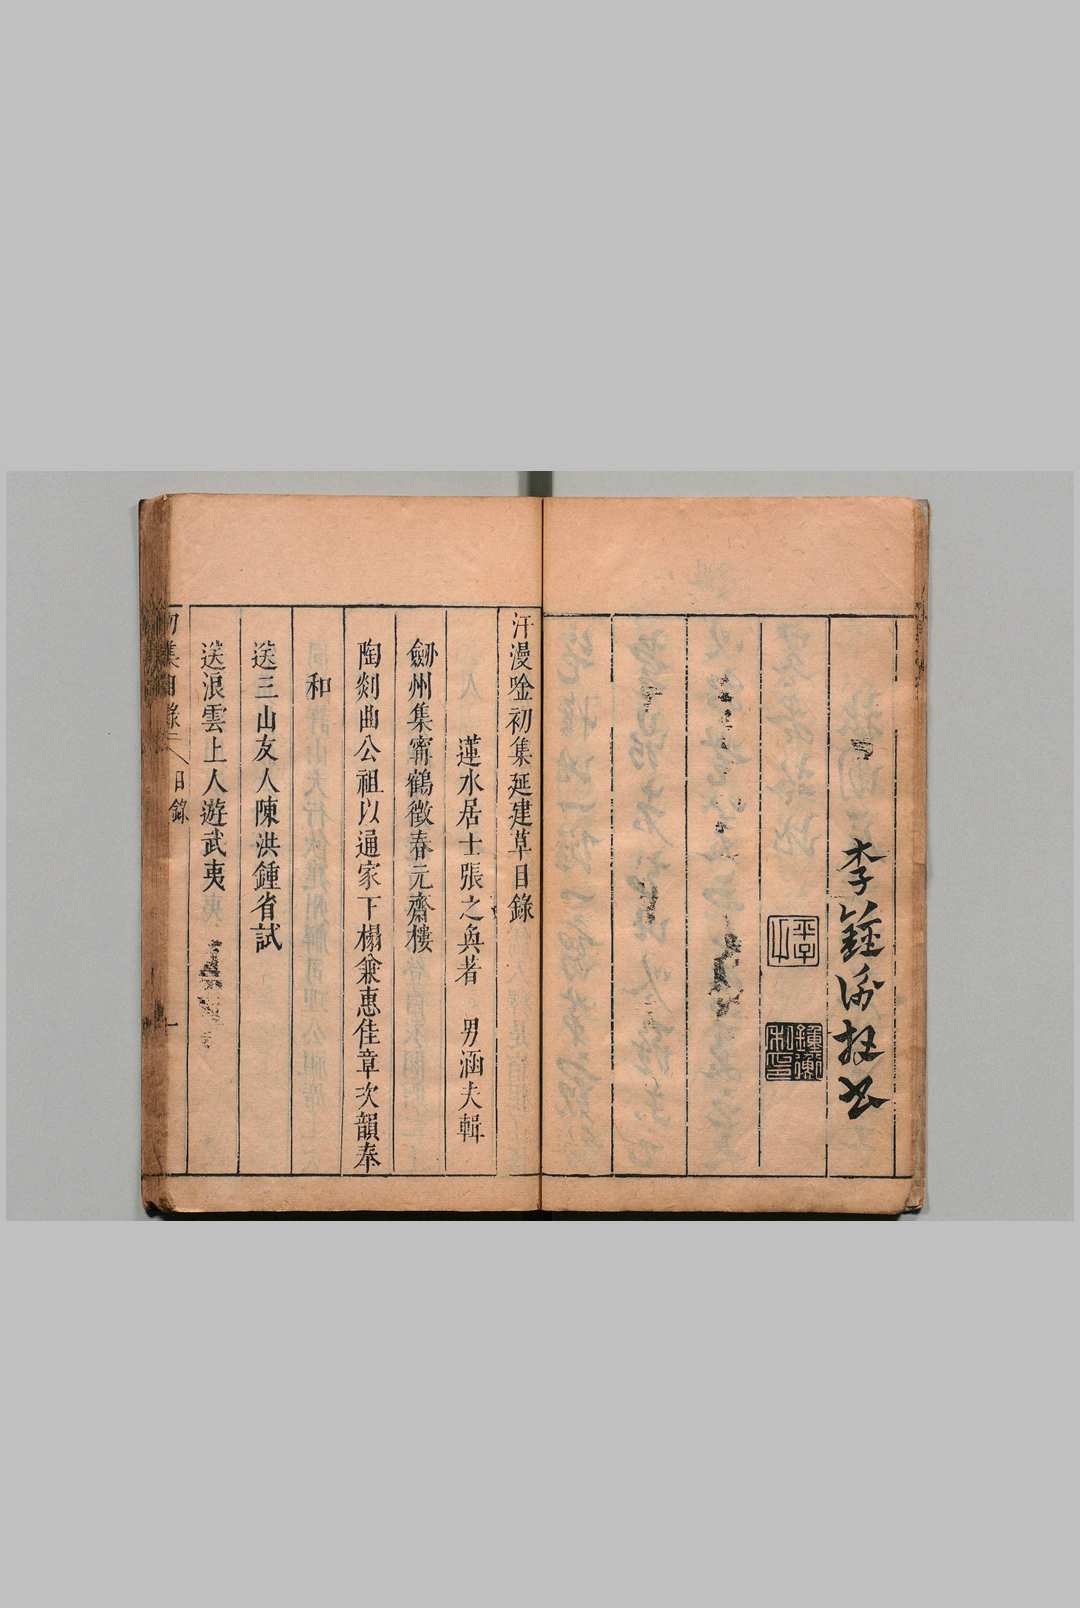 李鍾衡
汗漫唫初集延建草目錄
蓮水居士張之奐著　男涵夫輯
劒州集寗鶴徵春元齋樓
陶剡曲公祖以通家下榻兼惠佳章次韻奉
和
送三山友人陳洪鍾省試
送浪雲上人遊武夷
初集目錄
目錄
一